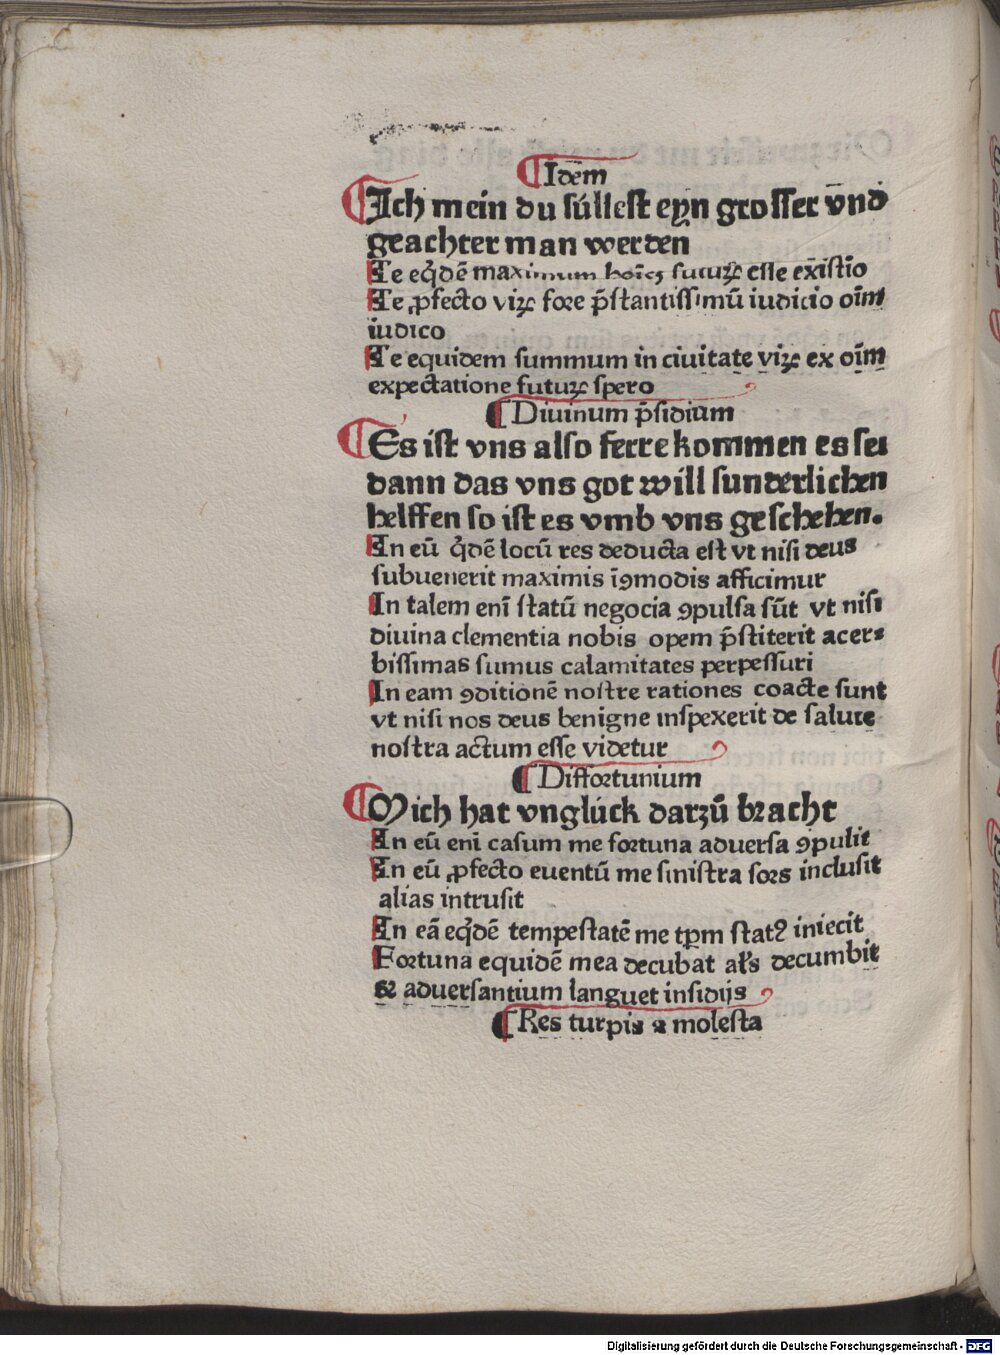 ¶Idem
¶Ich mein du súllest eyn grosser vnd
geachter man werden
Te eqͥdē maximum hoīeꝫ futuꝝ esse exīstīo
Te ꝓfecto viꝝ fore p̄stantissimū iudicio oīm
iudico
Te equidem summum in ciuitate viꝝ ex oīm
expectatione futuꝝ spero
¶Diuinum p̄sidium
¶Es ist vns also ferre kommen es sei
dann das vns got will sunderlichen
helffen so ist es vmb vns geschehen.
In eū qͥdē locū res deducta est vt nisi deus
subuenerit maximis īꝯmodis afficimur
In talem enī statū negocia ꝯpulsa sūt vt nisi
diuina clementia nobis opem p̄stiterit acer⸗
bissimas sumus calamitates perpessuri
In eam ꝯditionē nostre rationes coacte sunt
vt nisi nos deus benigne inspexerit de salute
nostra actum esse videtur
¶Diffortunium
¶Mich hat vnglúck darzů bracht
In eū enī casum me fortuna aduersa ꝯpulit
In eū ꝓfecto euentū me sinistra sors inclusit
alias intrusit
In eā eqͥdē tempestatē me tp̄m statꝰ iniecit
Fortuna equidē mea decubat ał's decumbit
& aduersantium languet insidijs
¶Res turpis ⁊ molesta
Digitalisierung gefördert durch die Deutsche Forschungsgemeinschaft - DFG